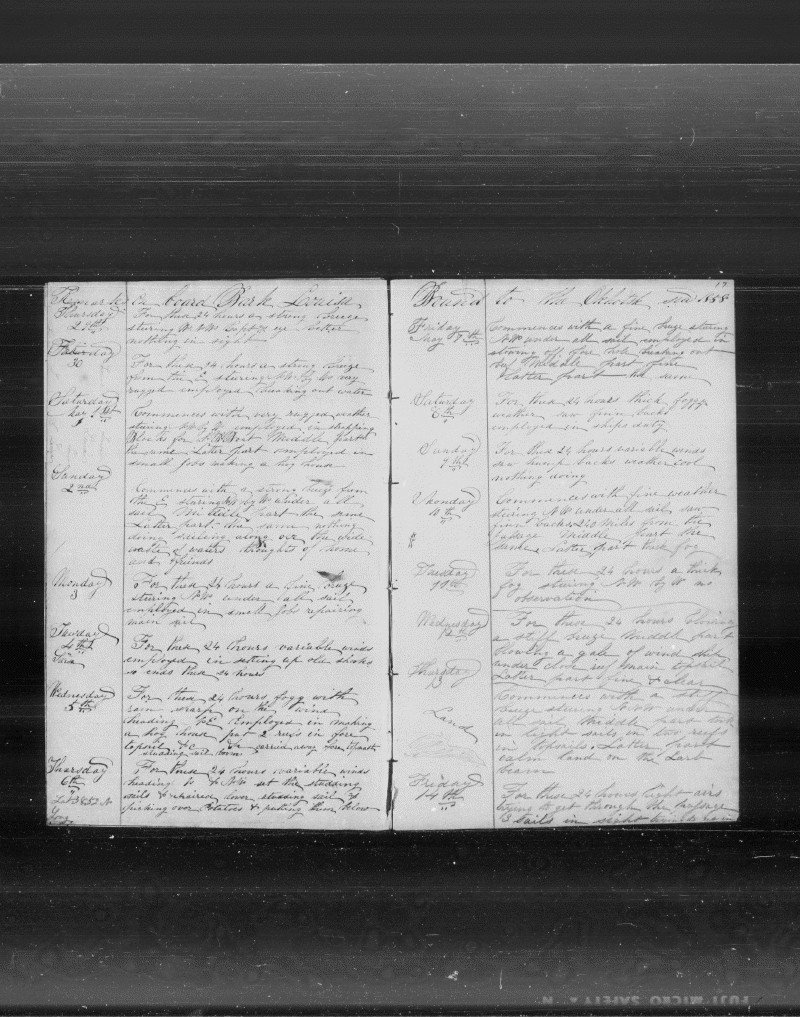 Remarks on board Bark Louisa
Thursday
29th
For these 24 hours a strong breeze
stering W b N
nothing in sight
Friday
30
For these 24 hours a strong breeze
from the E stering NW by W very
rugged employed breaking out water
Saturday
May 1st
Commences with very rugged wether
stering employed in stripping
Blocks for Boat Middle part
the same Latter part employed in
small Jobs making a hog house
Sunday
2nd
Commences with a strong breeze from
the E stering N by W under all
sail Middle part the same
Latter part the same nothing
doing sailing along over the wide
waste of waters thoughts of home
and friends
Monday
3
For these 24 hours a fine breeze
stering NW under all sail
employed in small jobs repairing
main sail
Tuesday
4th
For these 24 hours variable winds
employed in setting up old shooks
so ends these 24 hours
Wednesday
5th
For these 24 hours fogg with
rain sharp on the wind
heading NE employed in making
a hog house put 2 reefs in fore
topsail &c carried away fore topmast
studding sail boom
Thursday
6th
For these 24 hours variable winds
heading N & NW set the studding
sails & repaired lower studding sail &
picking over Potatoes & putting them below
Long
17
Bound to the Ochotsk sea 1858
Friday
May 7th
Commences with a fine breze stering
NW under all sail employed in
stowing off fore hole breaking out
beef Middle part fine
Latter part the same
Saturday
8th
For these 24 hours thick foggy
weather saw finn backs
employed in ships duty
Sunday
9th
For these 24 hours variable winds
saw hump backs weather cool
nothing doing
Monday
10th
Commences with fine weather
stering NW under all sail saw
finn backs 240 miles from the
Passage Middle part the
same Latter part thick fog
Tuesday
11th
For these 24 hours a thick
fog stering NW by W no
observation
Wednesday
12th
For these 24 hours blowing
a stiff breeze Middle part
blowing a gale of wind ship
under close reef main topsail
Latter part fine & clear
Thursday
13
Commences with a stiff
breeze stering NNW under
all sail Middle part took
in light sails in two reefs
in topsails Latter part
calm land on the Larb
beam
Land
Friday
14th
For these 24 hours light airs
trying to get through the passage
3 sails in sight